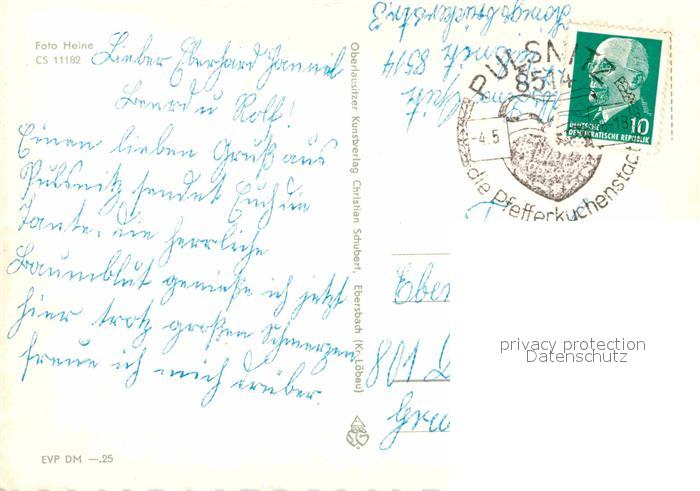 Foto Heine
CS 11182
Lieber Eberhard Hannel
Beerd u Rolf!
Einen lieben Gruß aus
Pulsnitz sendet Euch die
Tante. die herrliche
Baumblut genieße ich jetzt
hier trotz großen Schmerzen
freue ich mich drüber.
EVP DM —.25
Oberlausitzer Kunstverlag Christian Schubert, Ebersbach (Kr. Löbau)
Königsbrückerstr 3
Pulsnitz 8514
PULSNITZ
8514
-4.5
die Pfefferkuchenstadt
DEUTSCHE
DEMOKRATISCHE REPUBLIK
10
Eber
801 D
privacy protection
Datenschutz